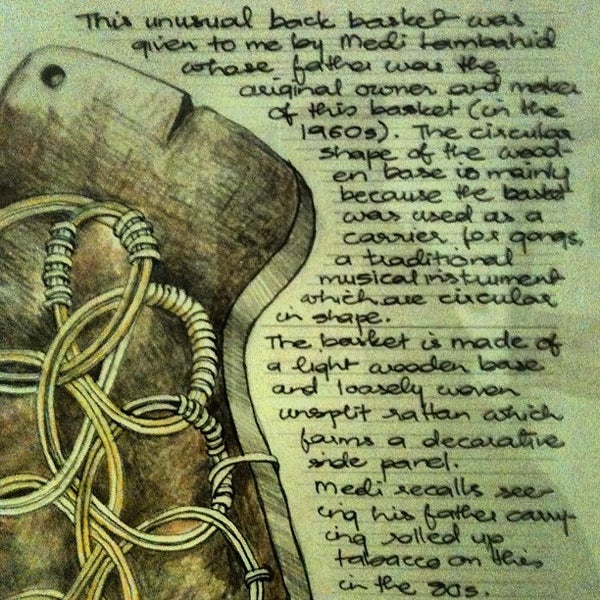 This unusual back basket was
given to me by Medi Lambahid
whose father was the
original owner and maker
of this basket (in the
1960s). The circular
shape of the wood-
en base is mainly
because the basket
was used as a
carrier for gongs,
a traditional
musical instrument
which are circular
in shape.
The basket is made of
a light wooden base
and loosely woven
unsplit rattan which
forms a decorative
side panel.
Medi recalls see-
ing his father carry-
ing rolled up
tabacco on this
in the 80s.